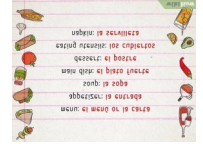 menu: el menú or la carta
appetizer: la entrada
soup: la sopa
main dish: el plato fuerte
dessert: el postre
eating utensils: los cubiertos
napkin: la servilleta
wikiHow